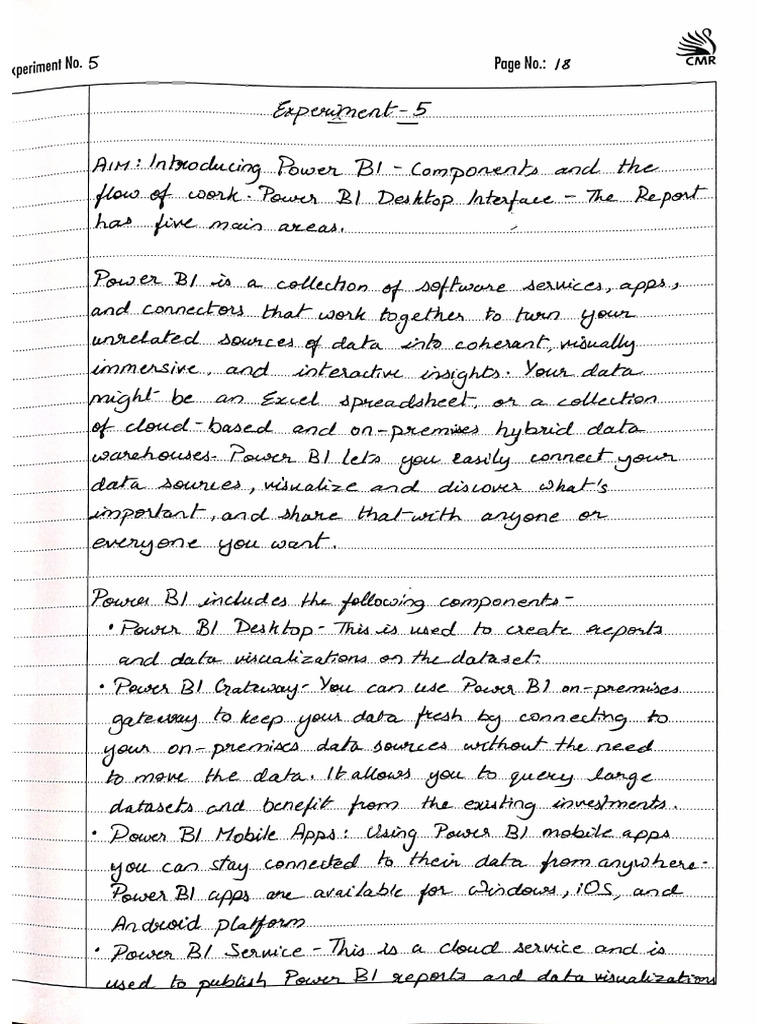 xperiment No. 5
Page No.: 18
CMR
Experiment-5
AIM: Introducing Power BI - Components and the
flow of work. Power BI Desktop Interface - The Report
has five main areas.
Power BI is a collection of software services, apps,
and connectors that work together to turn your
unrelated sources of data into coherant, visually
immersive, and interactive insights. Your data
might be an Excel spreadsheet, or a collection
of cloud-based and on-premises hybrid data
warehouses. Power BI lets you easily connect your
data sources, visualize and discover what's
important, and share that with anyone or
everyone you want.
Power BI includes the following components-
• Power BI Desktop - This is used to create reports
and data visualizations on the dataset.
• Power BI Gateway - You can use Power BI on-premises
gateway to keep your data fresh by connecting to
your on-premises data sources without the need
to move the data. It allows you to query large
datasets and benefit from the existing investments.
• Power BI Mobile Apps: Using Power BI mobile apps
you can stay connected to their data from anywhere.
Power BI apps are available for Windows, iOS, and
Android platform
• Power BI Service - This is a cloud service and is
used to publish Power BI reports and data visualizations